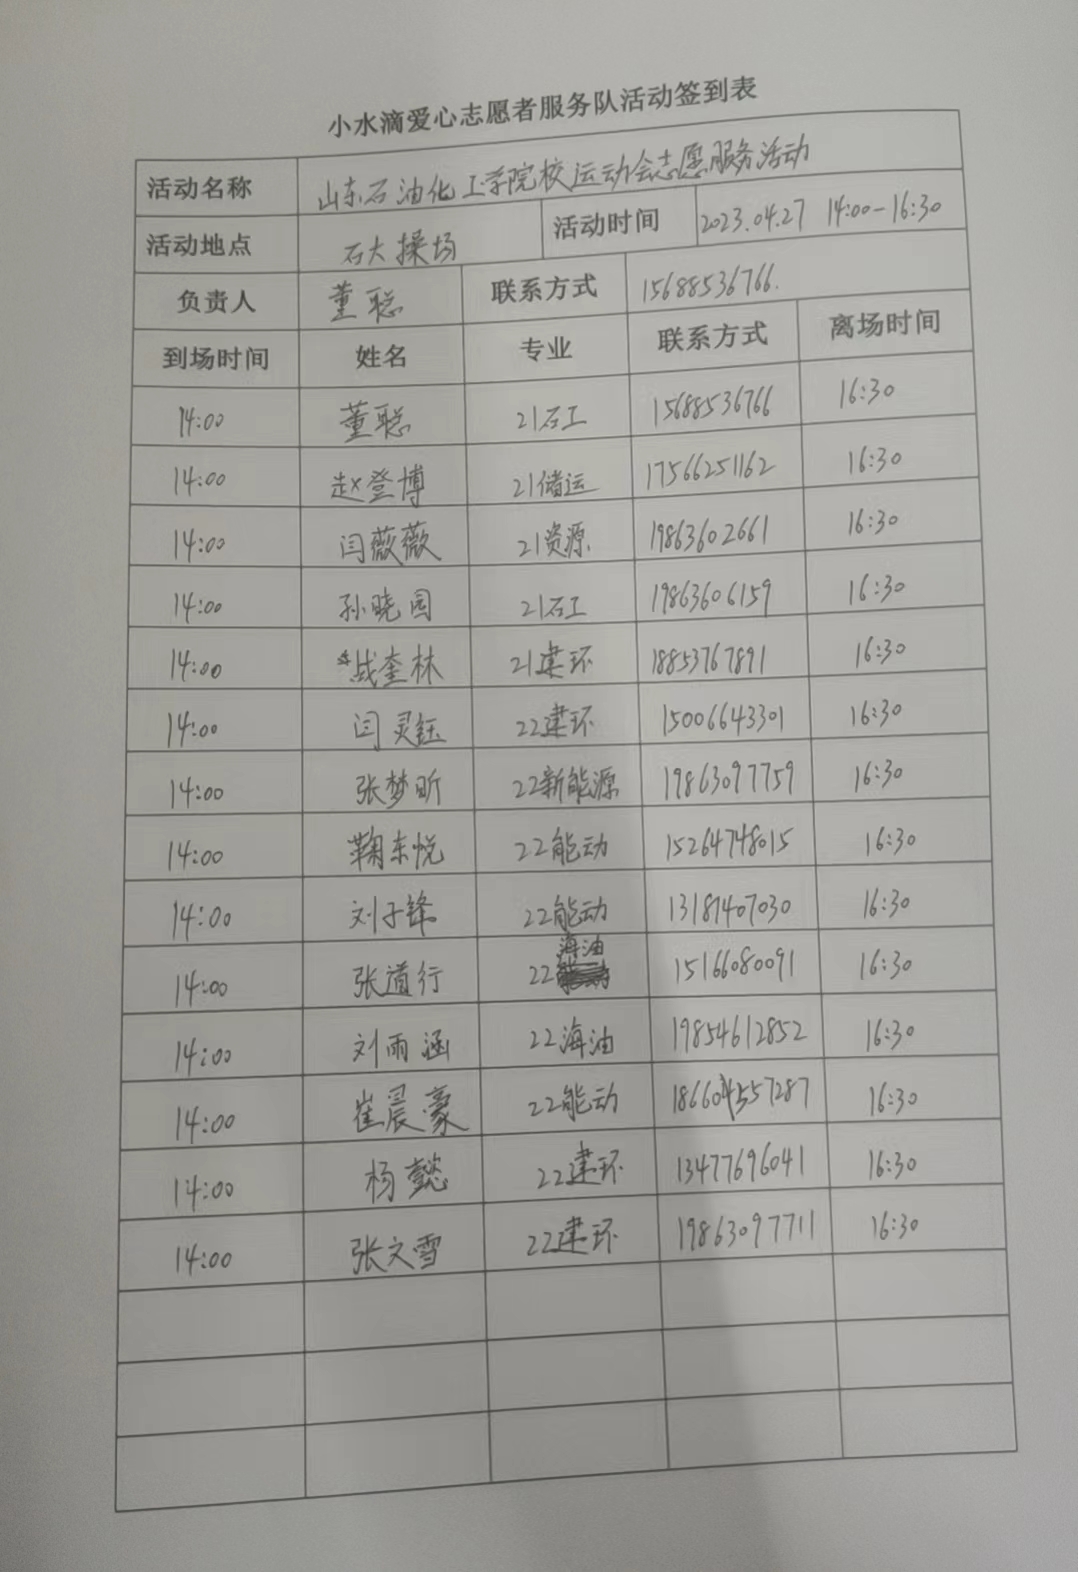 小水滴爱心志愿者服务队活动签到表
活动名称 山东石油化工学院校运动会志愿服务活动
活动地点 石大操场 活动时间 2023.04.27 14:00-16:30
负责人 董聪 联系方式 15688536766.
到场时间 姓名 专业 联系方式 离场时间
14:00 董聪 21石工 15688536766 16:30
14:00 赵登博 21储运 17566251162 16:30
14:00 闫薇薇 21资源 19863602661 16:30
14:00 孙晓园 21石工 19863606159 16:30
14:00 战奎林 21建环 18853767891 16:30
14:00 闫灵钰 22建环 15006643301 16:30
14:00 张梦昕 22新能源 19863097759 16:30
14:00 鞠东悦 22能动 15264748015 16:30
14:00 刘子锋 22能动 13187407030 16:30
14:00 张道行 22海油 15166080091 16:30
14:00 刘雨涵 22海油 19854612852 16:30
14:00 崔晨豪 22能动 16:30
14:00 杨懿 22建环 13477696041 16:30
14:00 张文雪 22建环 19863097711 16:30